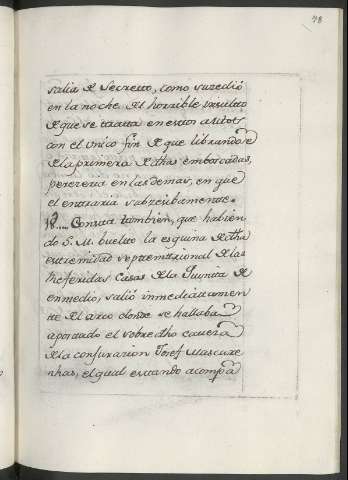 78
salia de Secretto, como suzedió
en la noche del horrible insulto
de que se tratta en estos auttos
con el unico fin de que librandose
de la primera de dhas emboscadas,
pereziera en las demas, en que
el entraria subzesibamente.
18.... Consta tambien, que habien
do S. M. buelto la esquina de dha
extremidad septemtrional de las
Referidas Casas de la Quinta de
enmedio, salió inmediattamen
te del arco donde se hallaba
apostado el sobredho caveza
de la conjurazion Josef Mascare
nhas, el qual estando acompa